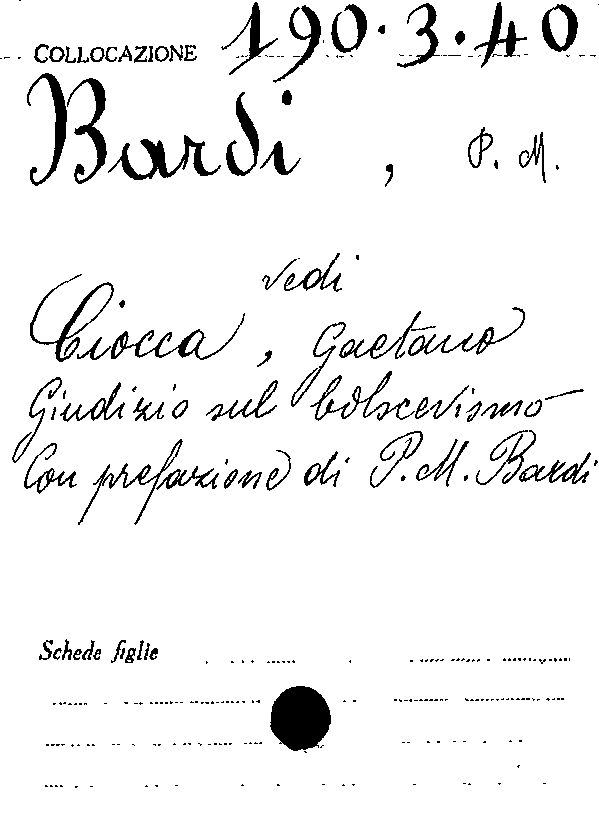 COLLOCAZIONE 190.3.40
Bardi, P. M.
vedi
Ciocca, Gaetano
Giudizio sul bolscevismo
Con prefazione di P. M. Bardi
Schede figlie